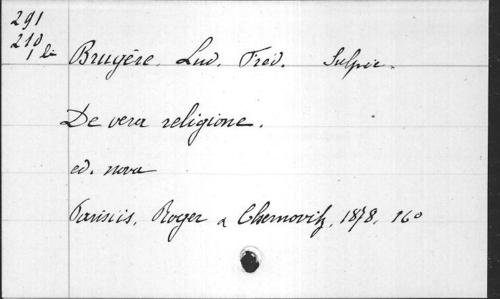 291
210
1 li
Brugère, Lud. Fréd. Sulpic.
De vera religione.
ed. nova
Parisiis, Roger a Chernovitz, 1878. 16o